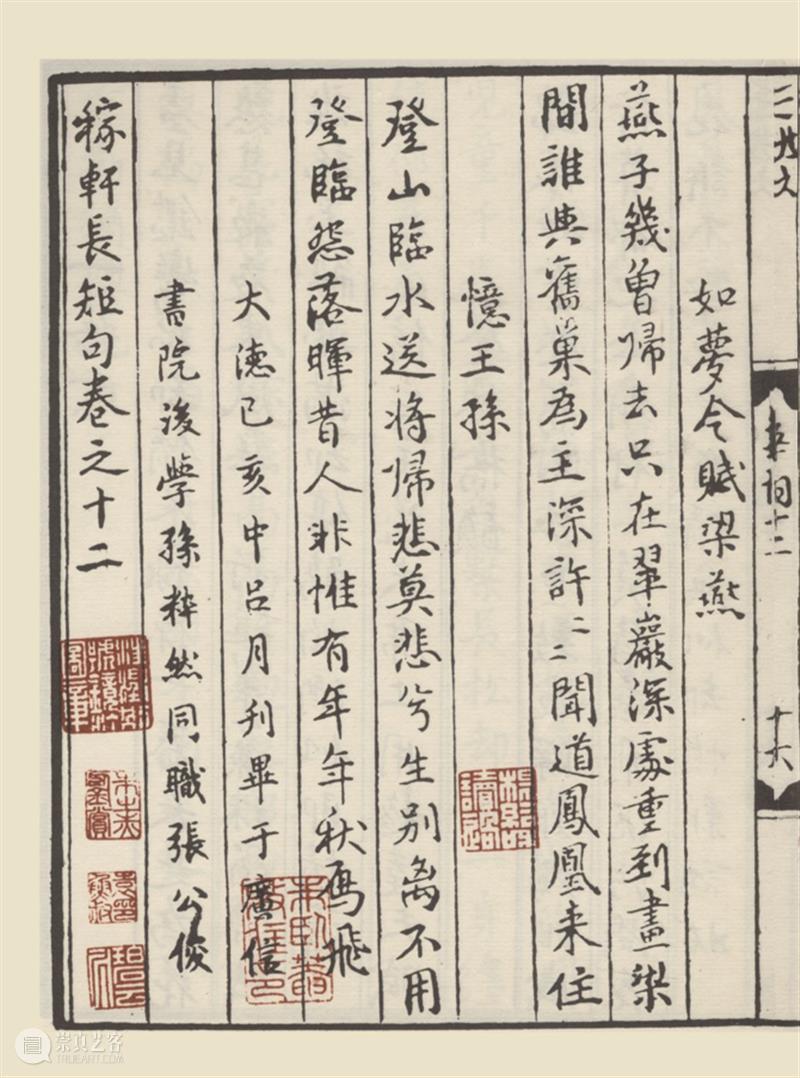 如夢令賦梁燕
燕子幾曾歸去只在翠巖深處重到畫梁
間誰與舊巢為主深許二二聞道鳳凰来住
憶王孫
登山臨水送將歸悲莫悲兮生别离不用
登臨怨落暉昔人非惟有年年秋鴈飛
大德己亥中吕月刊畢于廣信
書院後學孫粹然同職張公俊
稼軒長短句卷之十二
十六
崇真艺客
WWW.TRUEART.COM